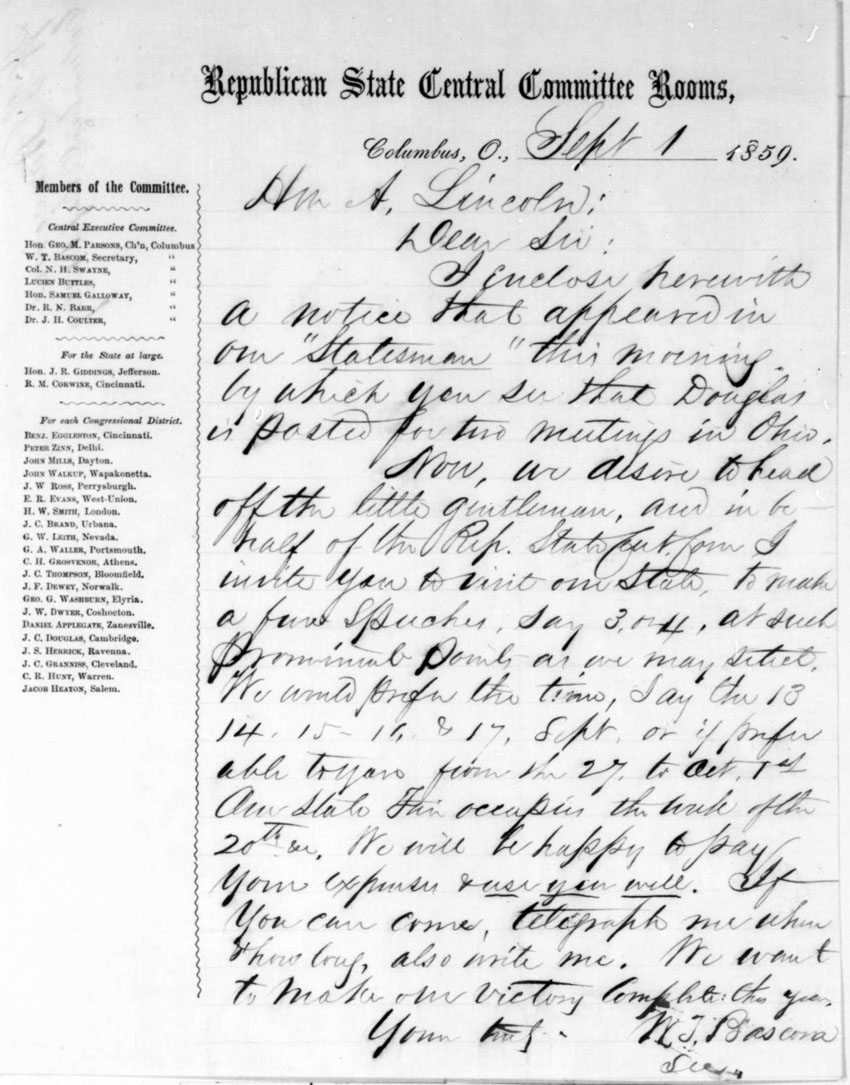 Republican State Central Committee Rooms,
Columbus, O., Sept 1 1859.
Members of the Committee.
Central Executive Committee.
Hon Geo. M. Parsons, Ch'n, Columbus
W. T. Bascom, Secretary, "
Col. N. H. Swayne, "
Lucien Buttles, "
Hon. Samuel Galloway, "
Dr. R. N. Barr, "
Dr. J. H. Coulter, "
For the State at large.
Hon. J. R. Giddings, Jefferson.
R. M. Corwine, Cincinnati.
For each Congressional District.
Benj. Eggleston, Cincinnati.
Peter Zinn, Delhi.
John Mills, Dayton.
John Walkup, Wapakonetta.
J. W Ross, Perrysburgh.
E. R. Evans, West-Union.
H. W. Smith, London.
J. C. Brand, Urbana.
G. W. Leith, Nevada.
G. A. Waller, Portsmouth.
C. H. Grosvenor, Athens.
J. C. Thompson, Bloomfield.
J. F. Dewey, Norwalk.
Geo. G. Washburn, Elyria.
J. W. Dwyer, Coshocton.
Daniel Applegate, Zanesville.
J. C. Douglas, Cambridge.
J. S. Herrick, Ravenna.
J. C. Granniss, Cleveland.
C. R. Hunt, Warren.
Jacob Heaton, Salem.
Hon A. Lincoln:
Dear Sir:
I enclose herewith
a notice that appeared in
our "Statesman" this morning,
by which you see that Douglas
is posted for two meetings in Ohio.
Now, we desire to head
off the little gentleman, and in be-
half of the Rep. State Cent. Com. I
invite you to visit our State, to make
a few Speeches, say 3, or 4, at such
prominent points as we may select.
We would prefer the time, say the 13
14. 15- 16, & 17, Sept. or if prefer
able to you from the 27, to Oct, 1st
Our State Fair occupies the week of the
20th. We will be happy to pay
your expenses & use you well. If
you can come, telegraph me when
& how long, also write me. We want
to make our victory complete this year.
Yours truly W. T. Bascom
Sec.